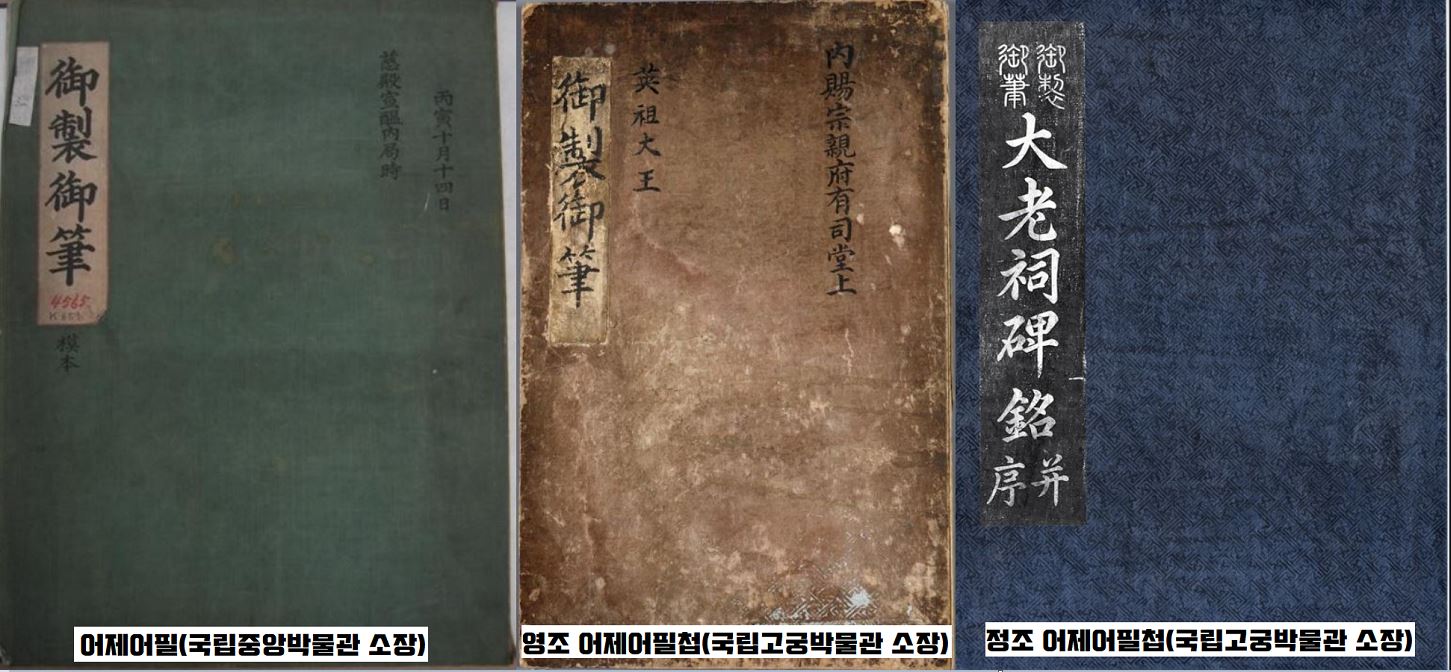 丙寅十月十四日
慈殿宣醞內局時
御製御筆
4565
模本
어제어필(국립중앙박물관 소장)
內賜宗親府有司堂上
英祖大王
御製御筆
영조 어제어필첩(국립고궁박물관 소장)
御製
御筆
大老祠碑銘
并
序
정조 어제어필첩(국립고궁박물관 소장)